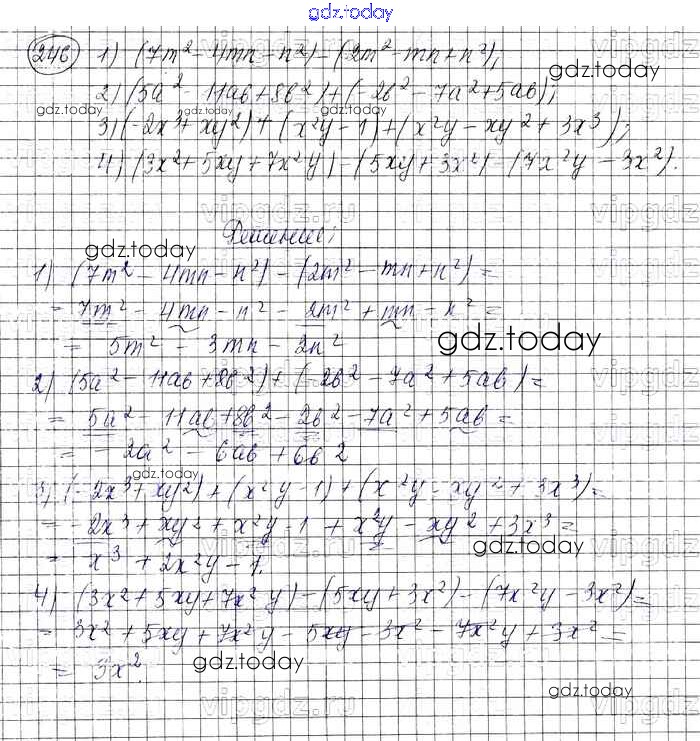 gdz.today
246 1) (7m² - 4mn - n²) - (2m² - mn + n²);
gdz.today
2) (5a² - 11ab + 8b²) + (-2b² - 7a² + 5ab);
gdz.today gdz.today
3) (-2x³ + xy²) + (x²y - 1) + (x²y - xy² + 3x³);
4) (3x² + 5xy + 7x²y) - (5xy + 3x²) - (7x²y - 3x²).
vipgdz.ru vipgdz
Решение:
gdz.today
1) (7m² - 4mn - n²) - (2m² - mn + n²) =
= 7m² - 4mn - n² - 2m² + mn - n² =
= 5m² - 3mn - 2n²
gdz.today
2) (5a² - 11ab + 8b²) + (-2b² - 7a² + 5ab) =
= 5a² - 11ab + 8b² - 2b² - 7a² + 5ab =
= -2a² - 6ab + 6b²
gdz.today
3) (-2x³ + xy²) + (x²y - 1) + (x²y - xy² + 3x³) =
= -2x³ + xy² + x²y - 1 + x²y - xy² + 3x³ =
gdz.today
= x³ + 2x²y - 1.
4) (3x² + 5xy + 7x²y) - (5xy + 3x²) - (7x²y - 3x²) =
= 3x² + 5xy + 7x²y - 5xy - 3x² - 7x²y + 3x² =
= 3x².
gdz.today
gdz.today
vipgdz.ru vipgdz